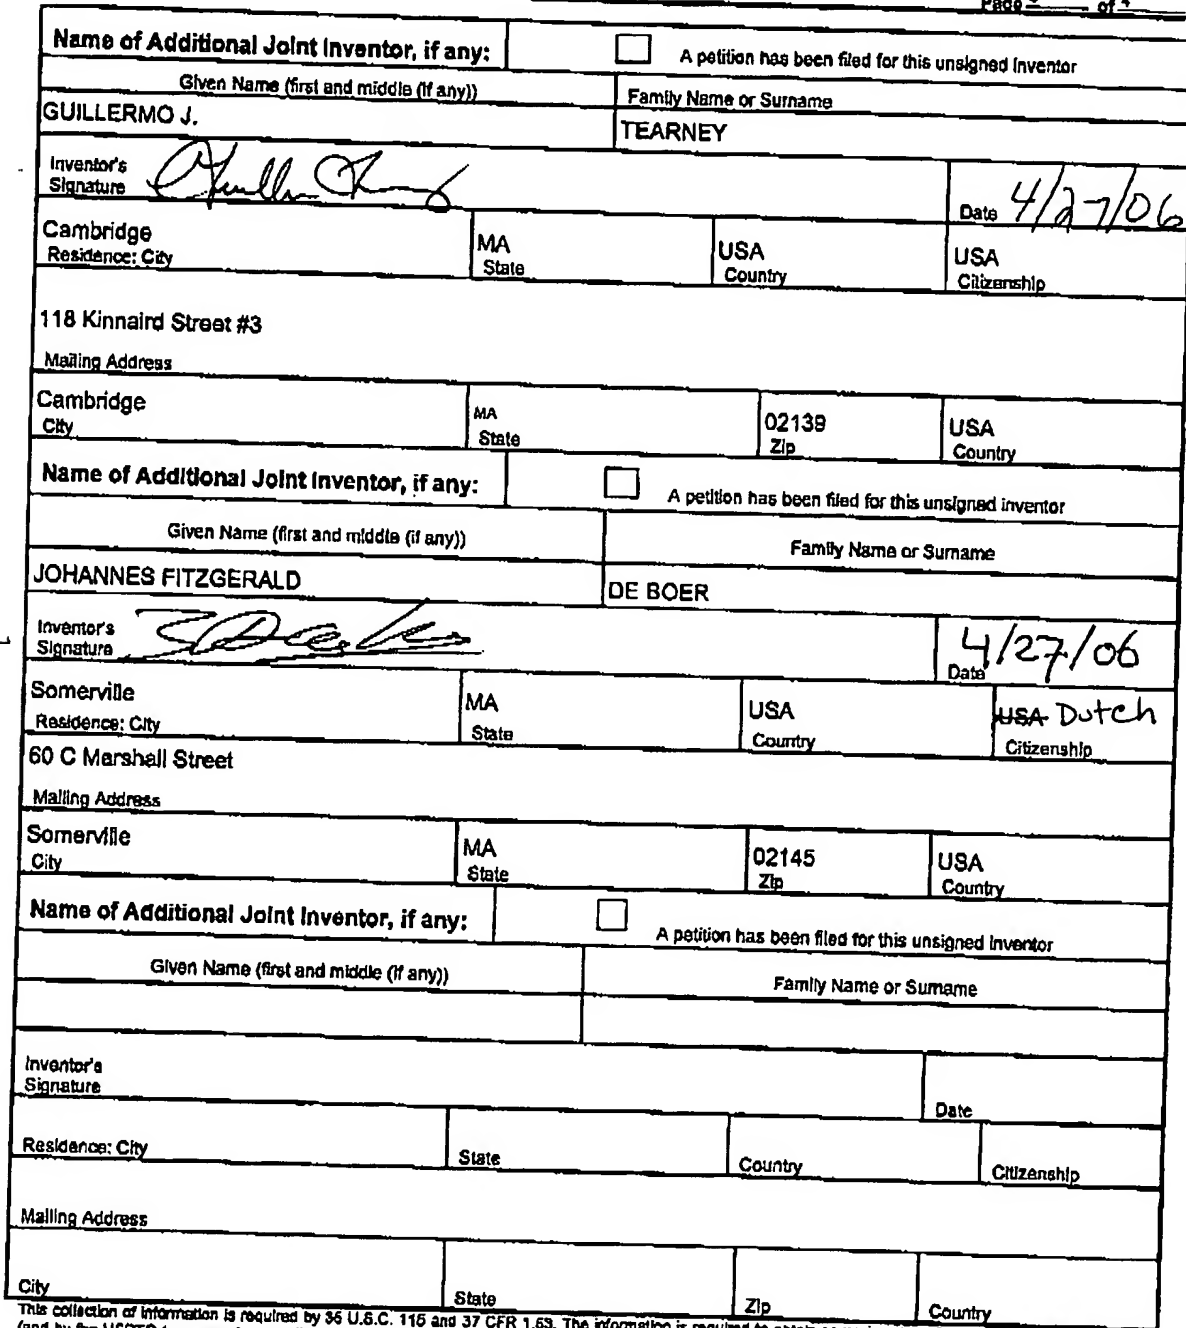 Page of
Name of Additional Joint Inventor, if any: A petition has been filed for this unsigned inventor
Given Name (first and middle (if any)) Family Name or Surname
GUILLERMO J. TEARNEY
Inventor's
Signature Date 4/27/06
Cambridge MA USA USA
Residence: City State Country Citizenship
118 Kinnaird Street #3
Mailing Address
Cambridge MA 02139 USA
City State Zip Country
Name of Additional Joint Inventor, if any: A petition has been filed for this unsigned inventor
Given Name (first and middle (if any)) Family Name or Surname
JOHANNES FITZGERALD DE BOER
Inventor's
Signature Date 4/27/06
Somerville MA USA USA Dutch
Residence: City State Country Citizenship
60 C Marshall Street
Mailing Address
Somerville MA 02145 USA
City State Zip Country
Name of Additional Joint Inventor, if any: A petition has been filed for this unsigned inventor
Given Name (first and middle (if any)) Family Name or Surname
Inventor's
Signature Date
Residence: City State Country Citizenship
Mailing Address
City State Zip Country
This collection of information is required by 35 U.S.C. 115 and 37 CFR 1.63. The information is required to